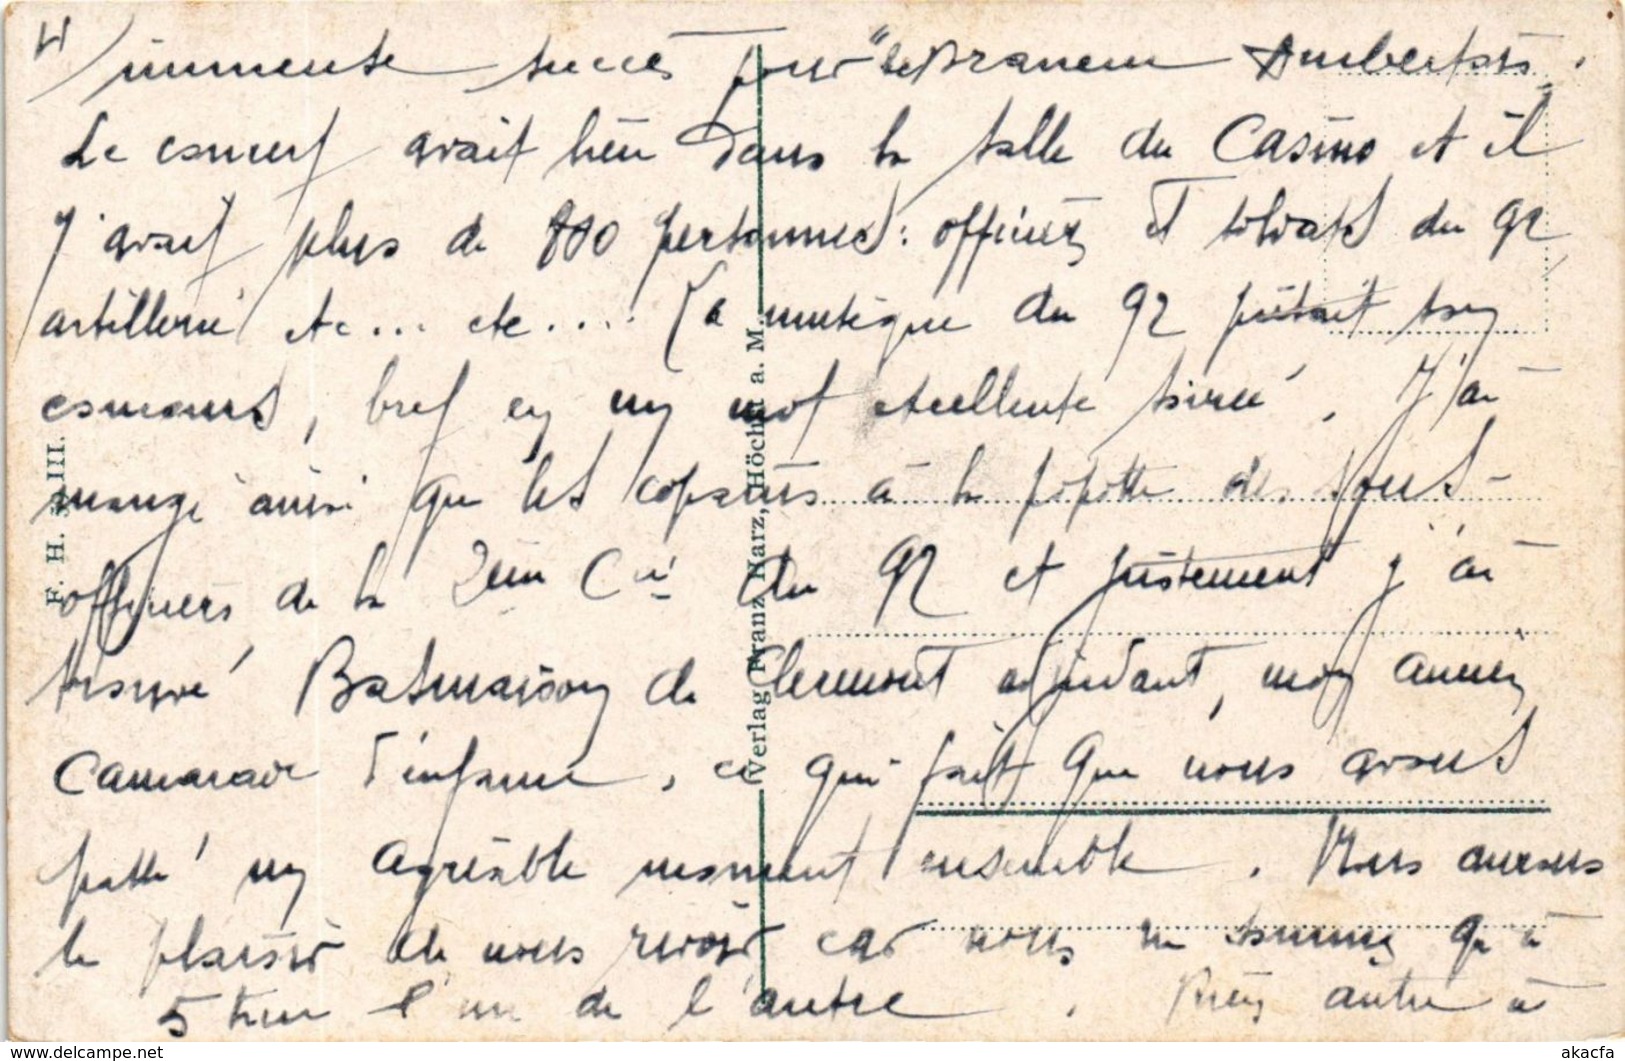 immense succès pour "le Dranem Ambertois".
Le concert avait lieu dans la salle du Casino et il
y avait plus de 800 personnes : officiers et soldats du 92
artillerie etc... etc.... La musique du 92 prêtait son
concours, bref en un mot excellente soirée. J'ai
mangé ainsi que les copains à la popotte des sous-
officiers de la 2ème Cie du 92 et justement j'ai
trouvé Batmaison de Clermont adjudant, mon ancien
camarade d'enfance, ce qui fait que nous avons
passé un agréable moment ensemble. Nous aurons
le plaisir de nous revoir car nous ne sommes qu'à
5 km l'un de l'autre. Rien autre à
F. H. a. III.
Verlag Franz Harz, Höchst a. M.
akacfa